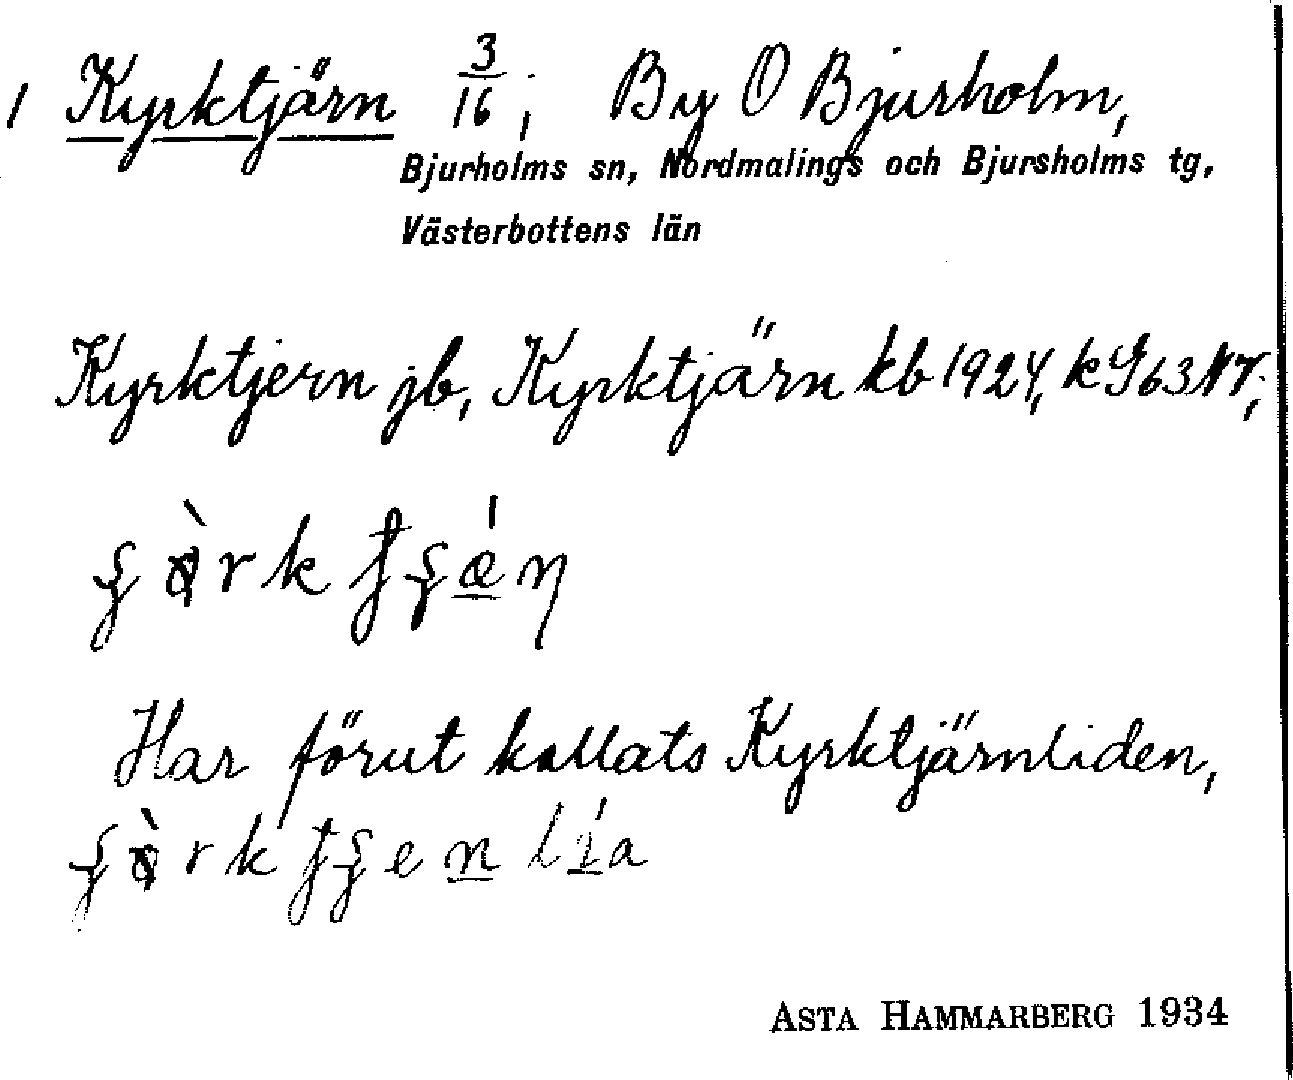 1 Kyrktjärn 3/16; By O Bjurholm,
Bjurholms sn, Nordmalings och Bjursholms tg,
Västerbottens län
Kyrktjern jb, Kyrktjärn kb 1924, k G 63 NV;
Har förut kallats Kyrktjärnliden,
ASTA HAMMARBERG 1934